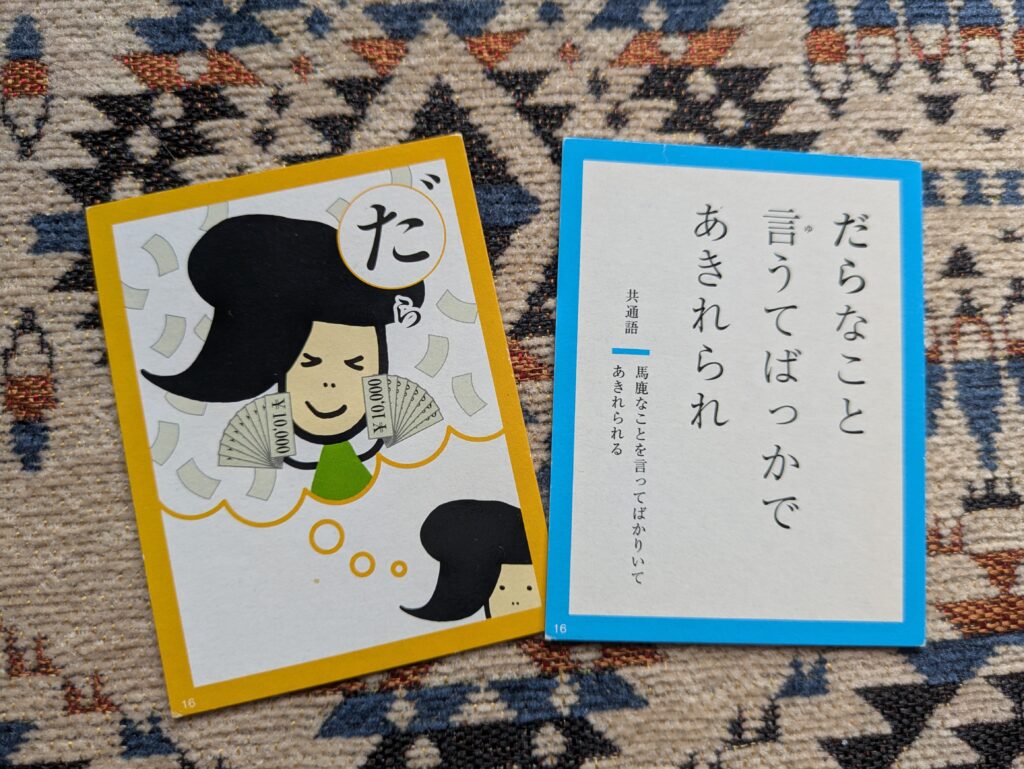 だ
ら
¥10,000
¥10,000
16
だらなこと
言うてばっかで
ゆ
あきれられ
共通語
馬鹿なことを言ってばかりいて
あきれられる
16